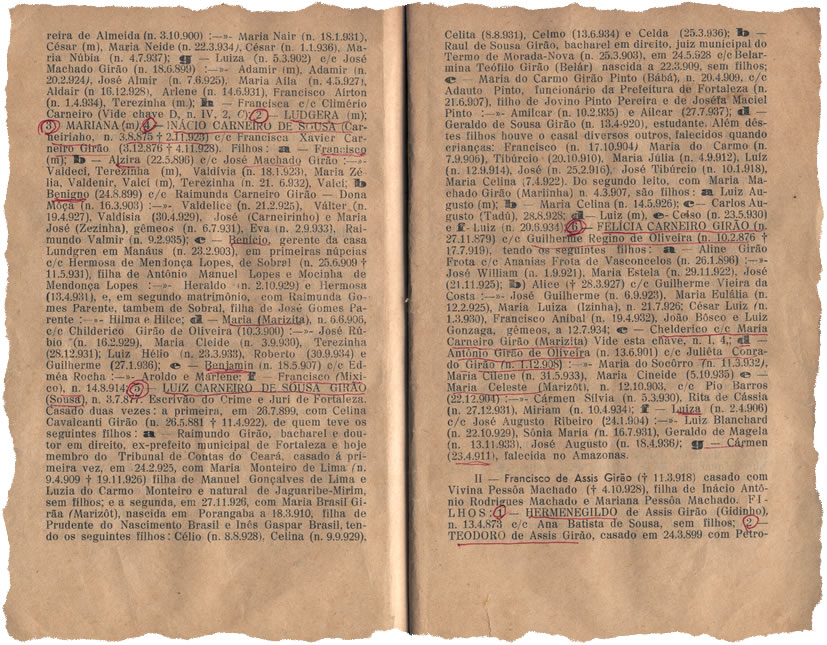 reira de Almeida (n. 3.10.900) :—»- Maria Nair (n. 18.1.931),
César (m), Maria Neide (n. 22.3.934), César (n. 1.1.936), Ma-
ria Núbia (n. 4.7.937); g — Luiza (n. 5.3.902) c/c José
Machado Girão (n. 18.6.899) :—»- Adamir (m), Adamir (n.
20.2.924), José Almir (n. 7.6.925), Maria Aila (n. 4.5.927),
Aldair (n 16.12.928), Arlene (n. 14.6.931), Francisco Airton
(n. 1.4.934), Terezinha (m.); h — Francisca c/c Climério
Carneiro (Vide chave D, n. IV, 2, C); 2 — LUDGERA (m);
3) MARIANA (m); 4 — INÁCIO CARNEIRO DE SOUSA (Car-
neirinho, n. 3.8.875 † 2.11.923) c/c Francisca Xavier Car-
neiro Girão (3.12.876 † 4.11.928). Filhos: a — Francisco
(m); b — Alzira (22.5.896) c/c José Machado Girão :—»-
Valdeci, Terezinha (m), Valdívia (n. 18.1.923), Maria Zé-
lia, Valdenir, Valci (m), Terezinha (n. 21. 6.932), Valci; b
Benigno (24.8.899) c/c Raimunda Carneiro Girão — Dona
Môça (n. 16.3.903) :—»- Valdelice (n. 21.2.925), Válter (n.
19.4.927), Valdísia (30.4.929), José (Carneirinho) e Maria
José (Zezinha), gêmeos (n. 6.7.931), Eva (n. 2.9.933), Rai-
mundo Valmir (n. 9.2.935); c — Benício, gerente da casa
Lundgren em Manáus (n. 23.2.903), em primeiras núpcias
c/c Hermosa de Mendonça Lopes, de Sobral (n. 25.6.909 †
11.5.931), filha de Antônio Manuel Lopes e Mocinha de
Mendonça Lopes :—»- Heraldo (n. 2.10.929) e Hermosa
(13.4.931), e, em segundo matrimônio, com Raimunda Go-
mes Parente, tambem de Sobral, filha de José Gomes Pa-
rente :—»- Hilma e Hilce; d — Maria (Marizita), n. 6.6.906,
c/c Childerico Girão de Oliveira (10.3.900) :—»- José Rú-
bio (n. 16.2.929), Maria Cleide (n. 3.9.930), Terezinha
(28.12.931); Luiz Hélio (n. 23.3.933), Roberto (30.9.934) e
Guilherme (27.1.936); e — Benjamin (n. 18.5.907) c/c Ed-
méa Rocha :—»- Aroldo e Marlene; f — Francisco (Mixi-
co), n. 14.8.914; 5 — LUIZ CARNEIRO DE SOUSA GIRÃO
(Sousa), n. 3.7.877. Escrivão do Crime e Juri de Fortaleza.
Casado duas vezes: a primeira, em 26.7.899, com Celina
Cavalcanti Girão (n. 26.5.881 † 11.4.922), de quem teve os
seguintes filhos: a — Raimundo Girão, bacharel e dou-
tor em direito, ex-prefeito municipal de Fortaleza e hoje
membro do Tribunal de Contas do Ceará, casado á pri-
meira vez, em 24.2.925, com Maria Monteiro de Lima (n.
9.4.909 † 19.11.926) filha de Manuel Gonçalves de Lima e
Luzia do Carmo Monteiro e natural de Jaguaribe-Mirim,
sem filhos; e a segunda, em 27.11.926, com Maria Brasil Gi-
rãa (Marizôt), nascida em Porangaba a 18.3.910, filha de
Prudente do Nascimento Brasil e Inês Gaspar Brasil, ten-
do os seguintes filhos: Célio (n. 8.8.928), Celina (n. 9.9.929),
Celita (8.8.931), Celmo (13.6.934) e Celda (25.3.936); b —
Raul de Sousa Girão, bacharel em direito, juiz municipal do
Termo de Morada-Nova (n. 25.3.903), em 24.5.928 c/c Belar-
mina Teófilo Girão (Belár) nascida a 22.3.909, sem filhos;
c — Maria do Carmo Girão Pinto (Bábá), n. 20.4.909, c/c
Adauto Pinto, funcionário da Prefeitura de Fortaleza (n.
21.6.907), filho de Jovino Pinto Pereira e de Joséfa Maciel
Pinto :—»- Amilcar (n. 10.2.935) e Ailcar (27.7.937); d —
Geraldo de Sousa Girão (n. 13.4-920), estudante. Além dês-
tes filhos houve o casal diversos outros, falecidos quando
crianças: Francisco (n. 17.10.904) Maria do Carmo (n.
7.9.906), Tibúrcio (20.10.910), Maria Júlia (n. 4.9.912), Luiz
(n. 12.9.914), José (n. 25.2.916), José Tibúrcio (n. 10.1.918),
Maria Celina (7.4.922). Do segundo leito, com Maria Ma-
chado Girão (Mariinha) n. 4.3.907, são filhos: a Luiz Au-
gusto (m); b — Maria Celina (n. 14.5.926); c — Carlos Au-
gusto (Tadú), 28.8.928; d — Luiz (m), e- Celso (n. 23.5.930)
e f- Luiz (n. 20.6.934); 6 — FELÍCIA CARNEIRO GIRÃO (n.
27.11.879) c/c Guilherme Regino de Oliveira (n. 10.2.876 †
17.7.919), tendo os seguintes filhos: a — Aline Girão
Frota c/c Ananias Frota de Vasconcelos (n. 26.1.896) :—»-
José William (n. 1.9.921), Maria Estela (n. 29.11.922), José
(21.11.925); b) Alice († 28.3.927) c/c Guilherme Vieira da
Costa :—»- José Guilherme (n. 6.9.923), Maria Eufália (n.
12.2.925), Maria Luiza (Izinha), n. 21.7.926; César Luiz (n.
1.3.930), Francisco Anibal (n. 19.4.932), João Bôsco e Luiz
Gonzaga, gêmeos, a 12.7.934; c — Chelderico c/c Maria
Carneiro Girão (Marizita) Vide esta chave, n. I, 4,; d —
Antônio Girão de Oliveira (n. 13.6.901) c/c Juliéta Conra-
do Girão (n. 1.12.908) :—»- Maria do Socôrro (n. 11.3.932),
Maria Cliene (n. 31.5.933), Maria Cineide (5.10.935) e —
Maria Celeste (Marizôt), n. 12.10.903, c/c Pio Barros
(22.12.904) :—»- Cármen Silvia (n. 5.3.930), Rita de Cássia
(n. 27.12.931), Miriam (n. 10.4.934); f — Luiza (n. 2.4.906)
c/c José Augusto Ribeiro (24.1.904) :—»- Luiz Blanchard
(n. 22.10.929), Sônia Maria (n. 16.7.931), Geraldo de Magela
(n. 13.11.933), José Augusto (n. 18.4.936); g — Cármen
(23.4.911), falecida no Amazonas.
II — Francisco de Assis Girão († 11.3.918) casado com
Vivina Pessôa Machado († 4.10.928), filha de Inácio Antô-
nio Rodrigues Machado e Mariana Pessôa Machado. FI-
LHOS: 1 — HERMENEGILDO de Assis Girão (Gidinho),
n. 13.4.873 c/c Ana Batista de Sousa, sem filhos; 2 —
TEODORO de Assis Girão, casado em 24.3.899 com Petro-